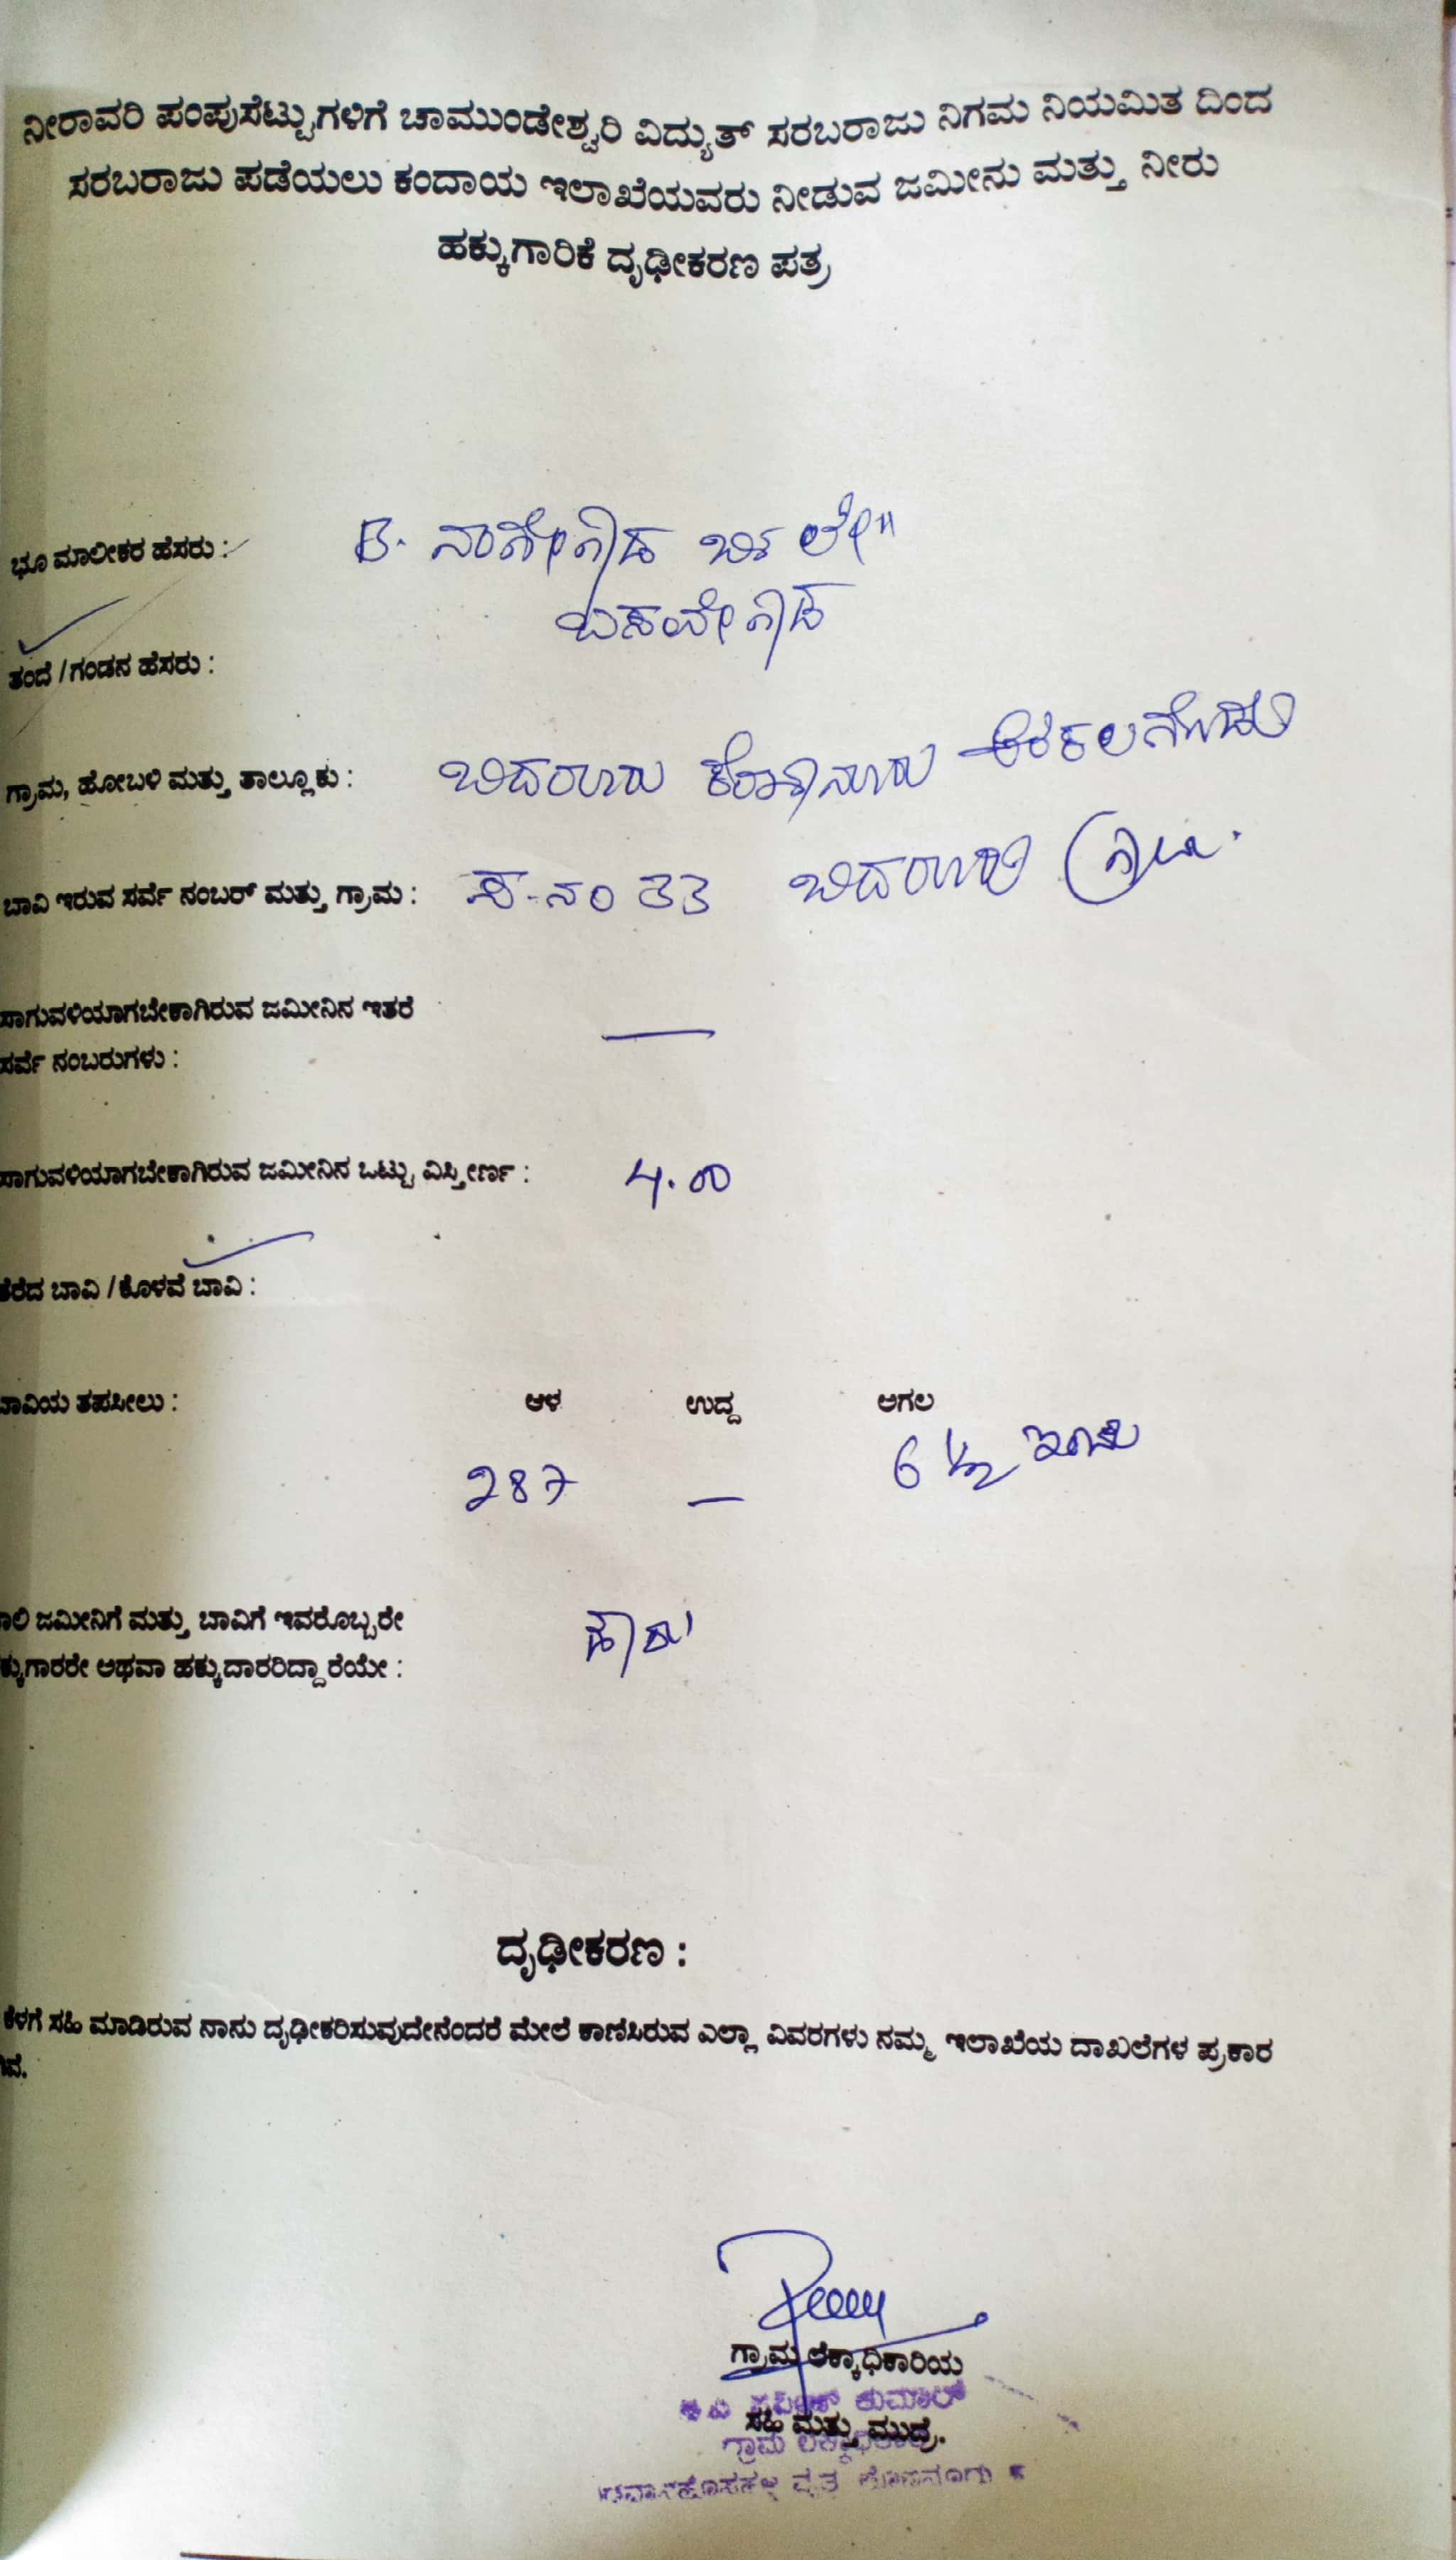 ನೀರಾವರಿ ಪಂಪುಸೆಟ್ಟುಗಳಿಗೆ ಚಾಮುಂಡೇಶ್ವರಿ ವಿದ್ಯುತ್ ಸರಬರಾಜು ನಿಗಮ ನಿಯಮಿತ ದಿಂದ
ಸರಬರಾಜು ಪಡೆಯಲು ಕಂದಾಯ ಇಲಾಖೆಯವರು ನೀಡುವ ಜಮೀನು ಮತ್ತು ನೀರು
ಹಕ್ಕುಗಾರಿಕೆ ದೃಢೀಕರಣ ಪತ್ರ
ಭೂ ಮಾಲೀಕರ ಹೆಸರು : B. ನಾಗೇಗೌಡ ಬಿನ್ ಲೇ॥
ಬಸವೇಗೌಡ
ತಂದೆ / ಗಂಡನ ಹೆಸರು :
ಗ್ರಾಮ, ಹೋಬಳಿ ಮತ್ತು ತಾಲ್ಲೂಕು : ಬಿದರೂರು ಕೊಣನೂರು ಅರಕಲಗೂಡು
ಬಾವಿ ಇರುವ ಸರ್ವೆ ನಂಬರ್ ಮತ್ತು ಗ್ರಾಮ : ಸ.ನಂ 33 ಬಿದರೂರು ಗ್ರಾಮ.
ಸಾಗುವಳಿಯಾಗಬೇಕಾಗಿರುವ ಜಮೀನಿನ ಇತರೆ
ಸರ್ವೆ ನಂಬರುಗಳು : —
ಸಾಗುವಳಿಯಾಗಬೇಕಾಗಿರುವ ಜಮೀನಿನ ಒಟ್ಟು ವಿಸ್ತೀರ್ಣ : 4.00
ತೆರೆದ ಬಾವಿ / ಕೊಳವೆ ಬಾವಿ :
ಬಾವಿಯ ತಪಸೀಲು : ಆಳ ಉದ್ದ ಅಗಲ
287 — 6 ½ ಇಂಚು
ಜಮೀನಿಗೆ ಮತ್ತು ಬಾವಿಗೆ ಇವರೊಬ್ಬರೇ
ಹಕ್ಕುಗಾರರೇ ಅಥವಾ ಹಕ್ಕುದಾರರಿದ್ದಾರೆಯೇ : ಹೌದು
ದೃಢೀಕರಣ :
ಕೆಳಗೆ ಸಹಿ ಮಾಡಿರುವ ನಾನು ದೃಢೀಕರಿಸುವುದೇನೆಂದರೆ ಮೇಲೆ ಕಾಣಿಸಿರುವ ಎಲ್ಲಾ ವಿವರಗಳು ನಮ್ಮ ಇಲಾಖೆಯ ದಾಖಲೆಗಳ ಪ್ರಕಾರ
ಗ್ರಾಮ ಲೆಕ್ಕಾಧಿಕಾರಿಯ
ಕುಮಾರ್
ಸಹಿ ಮತ್ತು ಮುದ್ರೆ.
ಗ್ರಾಮ ಲೆಕ್ಕಾಧಿಕಾರಿ
ವೃತ್ತ